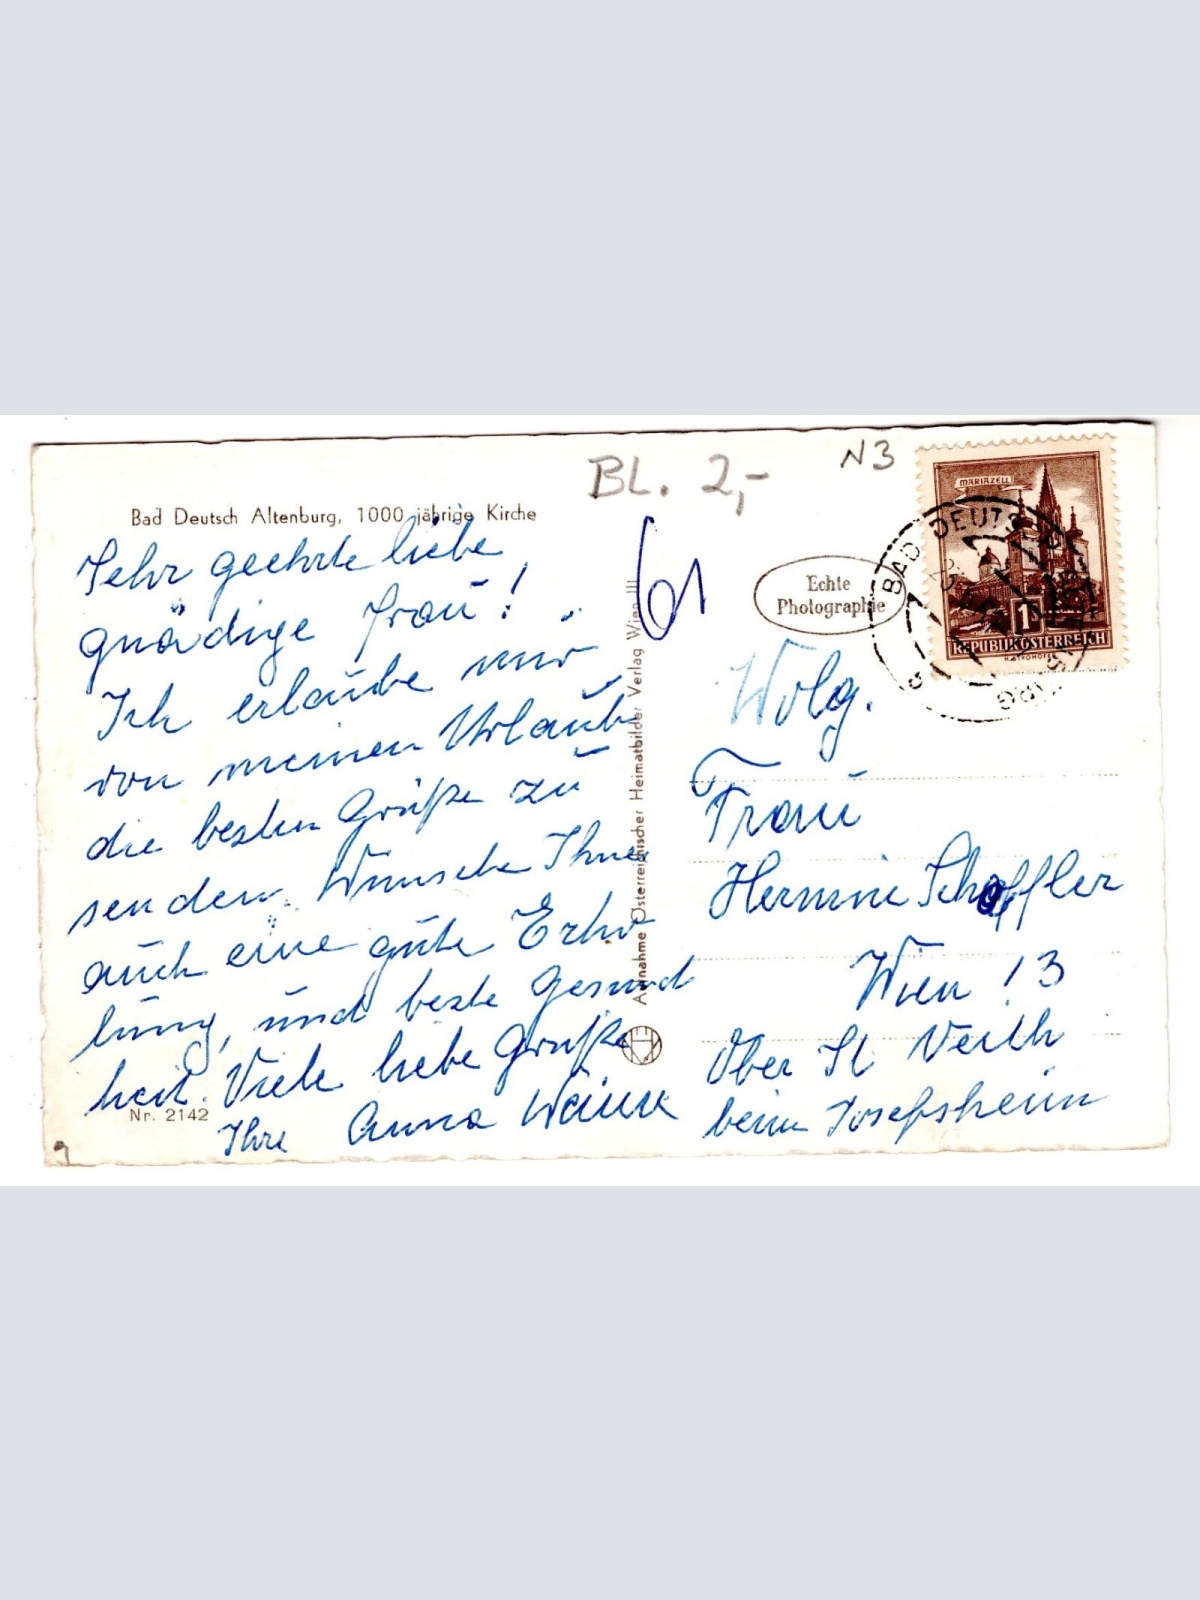 BL. 2,-
N3
Bad Deutsch Altenburg, 1000 jährige Kirche
Sehr geehrte liebe
gnädige Frau!
Ich erlaube mir
von meinen Urlaub
die besten Grüße zu
senden. Wünsche Ihnen
auch eine gute Erho
lung, und beste Gesund
heit. Viele liebe Grüße
Ihre Anna
Nr. 2142
61
Aufnahme Österreichischer Heimatbilder Verlag Wien III
Echte
Photographie
MARIAZELL
1S
REPUBLIK ÖSTERREICH
BAD DEUTSCH
Wolg.
Frau
Hermine Schoffler
Wien 13
Ober St Veith
beim Josefsheim